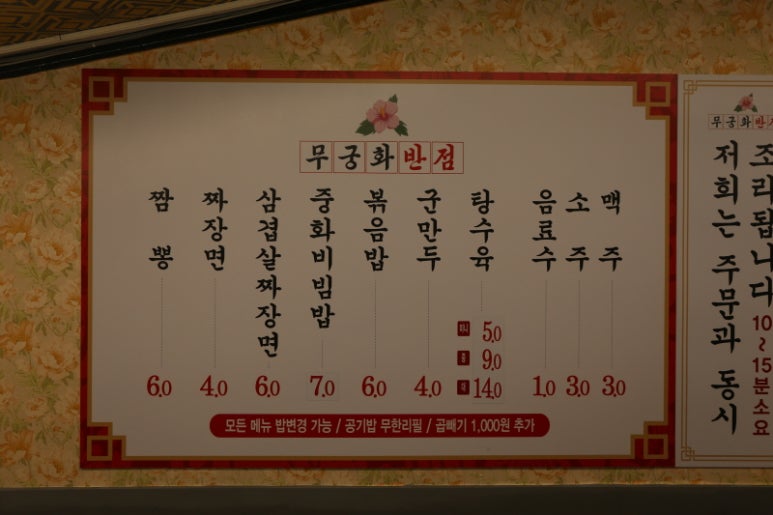 무궁화반점
짬뽕 6.0
짜장면 4.0
삼겹살짜장면 6.0
중화비빔밥 7.0
볶음밥 6.0
군만두 4.0
탕수육
미니 5.0
중 9.0
대 14.0
음료수 1.0
소주 3.0
맥주 3.0
모든 메뉴 밥변경 가능 / 공기밥 무한리필 / 곱빼기 1,000원 추가
무궁화반
저희는 주문과 동시
조리됩니다 10~15분소요